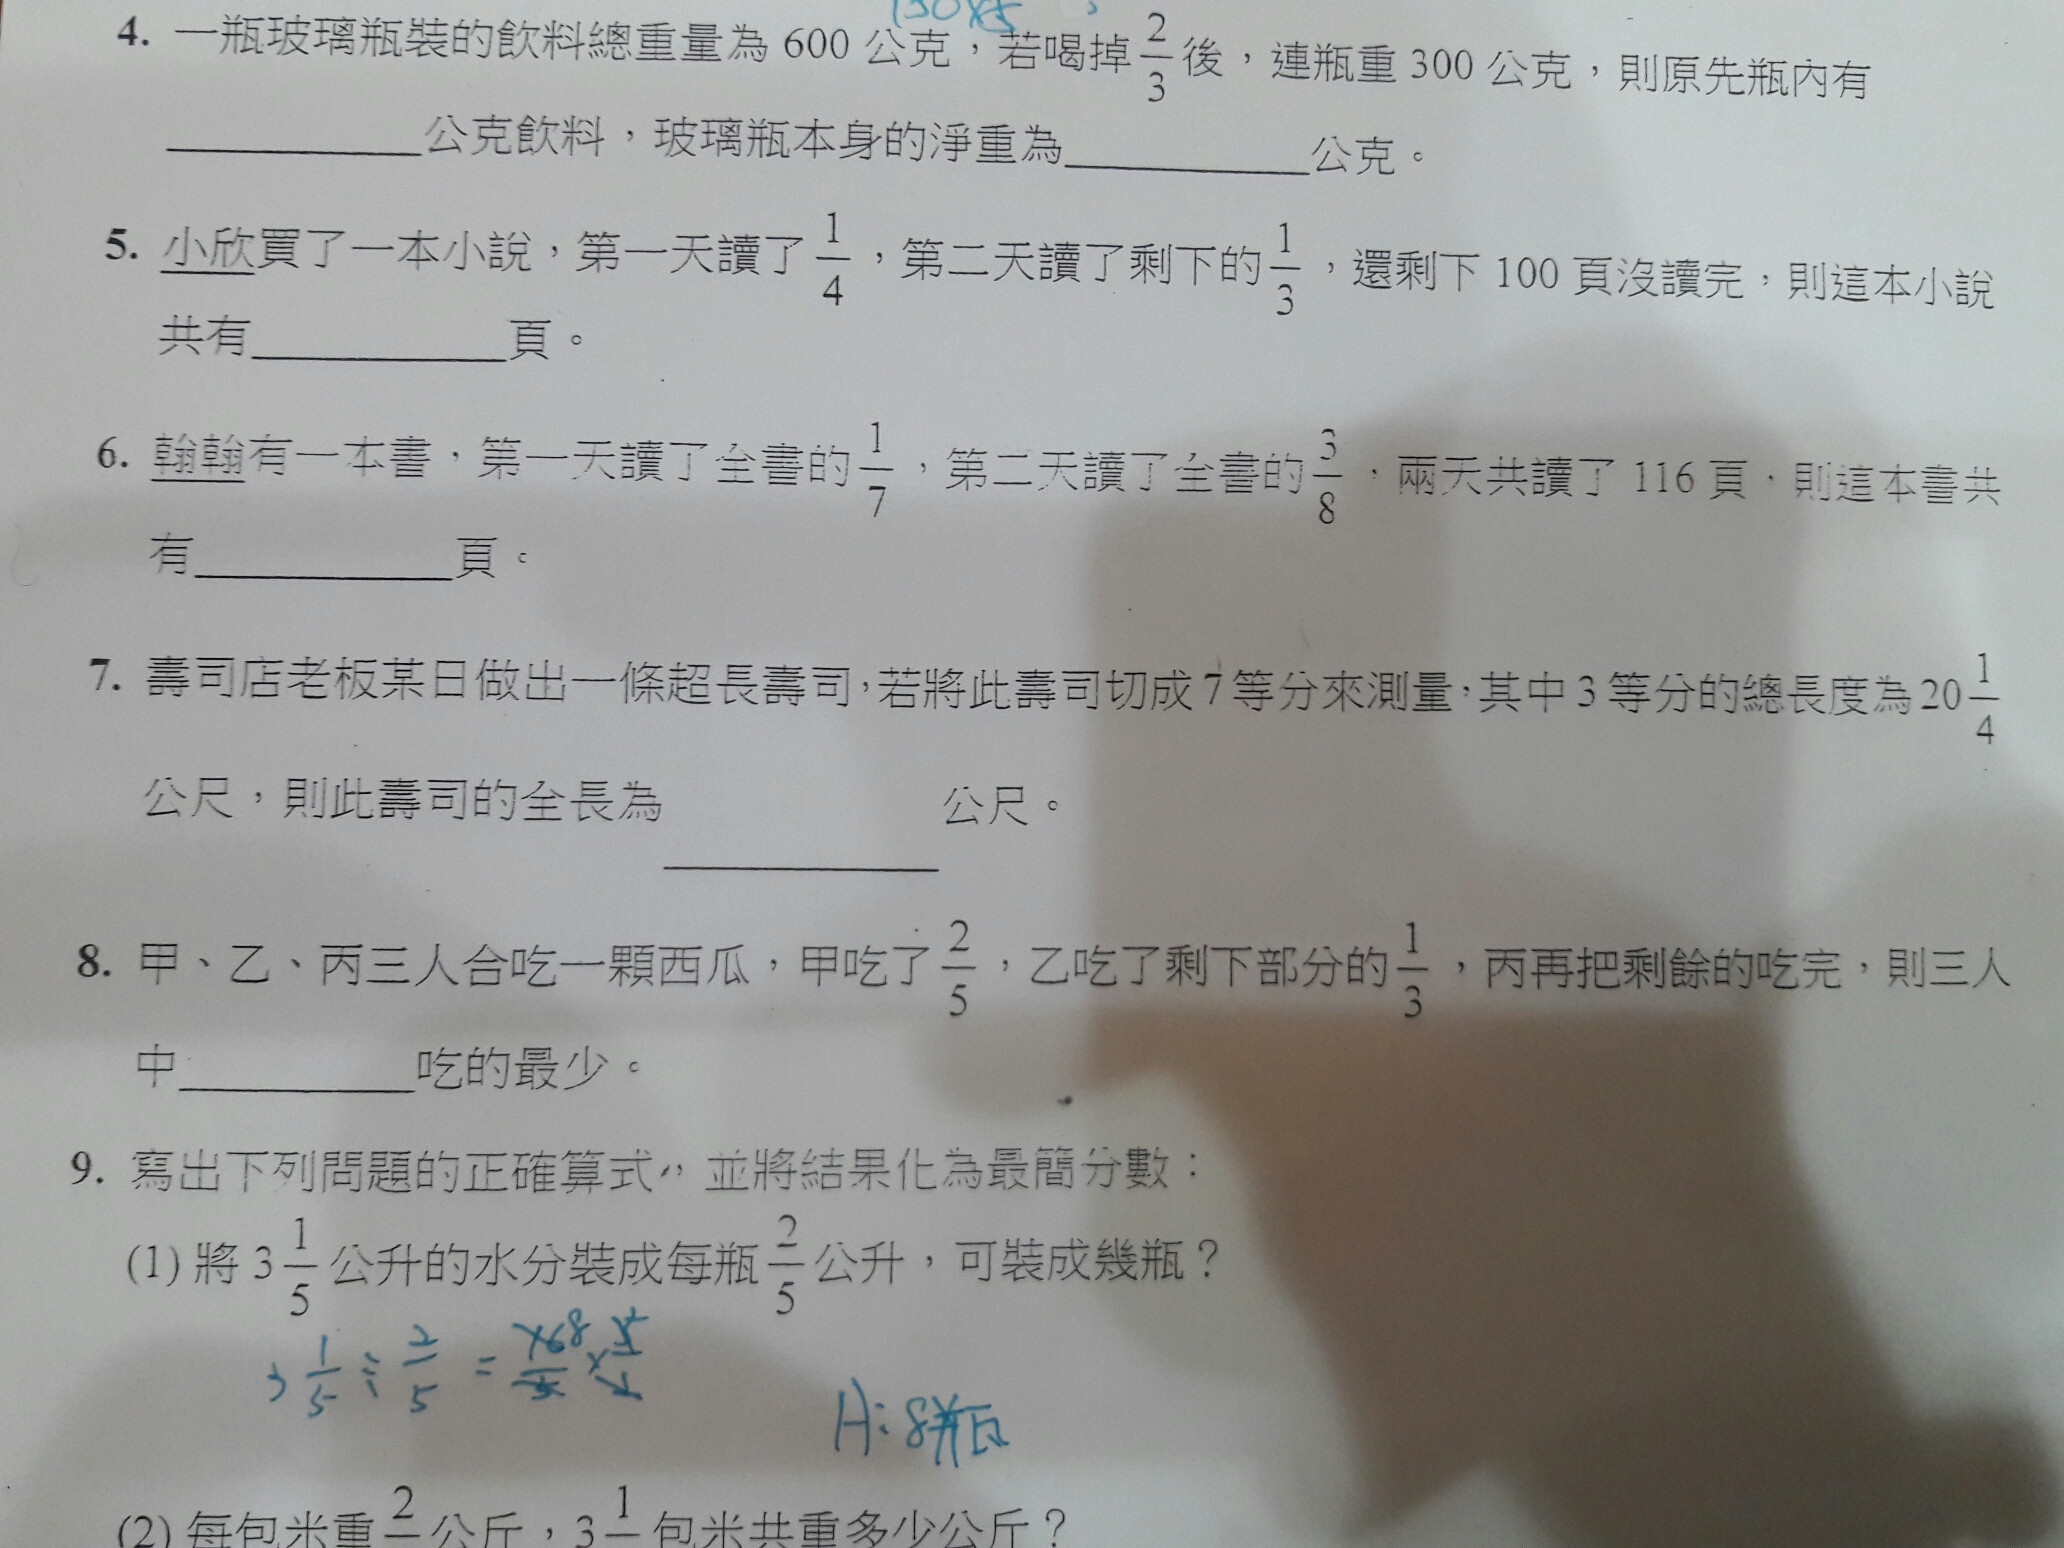 4. 一瓶玻璃瓶裝的飲料總重量為 600 公克，若喝掉 2/3 後，連瓶重 300 公克，則原先瓶內有
__________公克飲料，玻璃瓶本身的淨重為__________公克。
5. 小欣買了一本小說，第一天讀了 1/4，第二天讀了剩下的 1/3，還剩下 100 頁沒讀完，則這本小說
共有__________頁。
6. 翰翰有一本書，第一天讀了全書的 1/7，第二天讀了全書的 3/8，兩天共讀了 116 頁，則這本書共
有__________頁。
7. 壽司店老板某日做出一條超長壽司，若將此壽司切成 7 等分來測量，其中 3 等分的總長度為 20 1/4
公尺，則此壽司的全長為__________公尺。
8. 甲、乙、丙三人合吃一顆西瓜，甲吃了 2/5，乙吃了剩下部分的 1/3，丙再把剩餘的吃完，則三人
中__________吃的最少。
9. 寫出下列問題的正確算式，並將結果化為最簡分數：
(1) 將 3 1/5 公升的水分裝成每瓶 2/5 公升，可裝成幾瓶？
3 1/5 ÷ 2/5 =
A: 8瓶
(2) 每包米重 2 公斤，3 1 包米共重多少公斤？